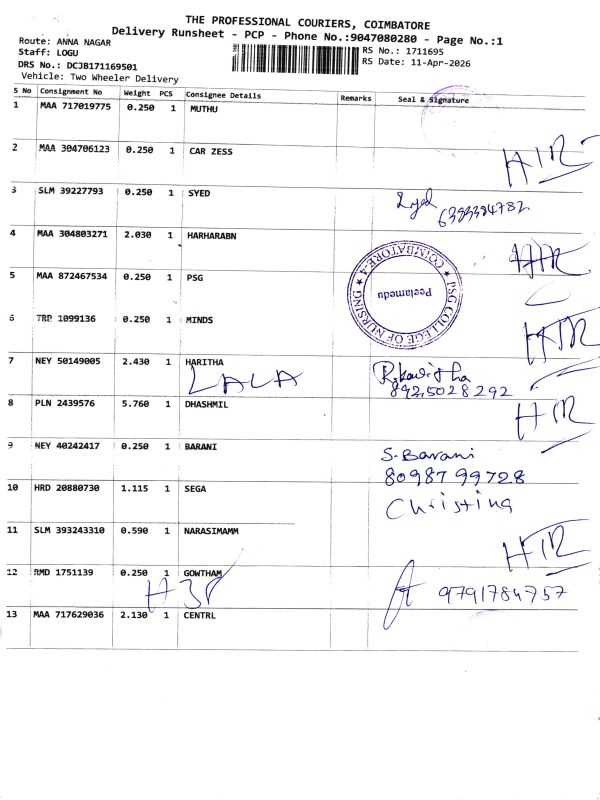 THE PROFESSIONAL COURIERS, COIMBATORE
Delivery Runsheet - PCP - Phone No.:9047080280 - Page No.:1
Route: ANNA NAGAR
Staff: LOGU
RS No.: 1711695
DRS No.: DCJB171169501
RS Date: 11-Apr-2026
Vehicle: Two Wheeler Delivery
S No Consignment No Weight PCS Consignee Details Remarks Seal & Signature
1 MAA 717019775 0.250 1 MUTHU
2 MAA 304706123 0.250 1 CAR ZESS
3 SLM 39227793 0.250 1 SYED
Syed
6383384782
4 MAA 304803271 2.030 1 HARHARABN
5 MAA 872467534 0.250 1 PSG
PSG COLLEGE OF NURSING COIMBATORE-4
Peelamedu
6 TRP 1099136 0.250 1 MINDS
7 NEY 50149005 2.430 1 HARITHA
LALA
R.kavitha
8925028292
8 PLN 2439576 5.760 1 DHASHMIL
9 NEY 40242417 0.250 1 BARANI
S-Barani
8098799728
10 HRD 20880730 1.115 1 SEGA
Christina
11 SLM 393243310 0.590 1 NARASIMAMM
12 RMD 1751139 0.250 1 GOWTHAM
9791784757
13 MAA 717629036 2.130 1 CENTRL